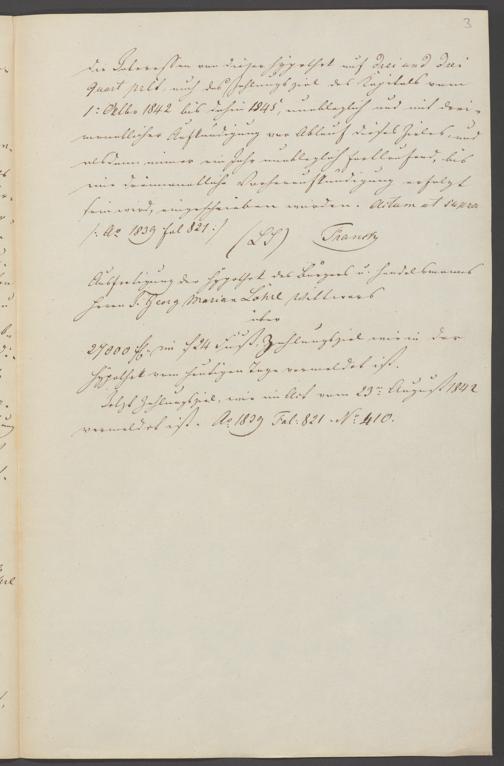 3
die Interessen von dieser Hypothek auf drei und drei
quart pCt, auch des Zahlungsziel des Kapitals vom
1: Octbr 1842 bis dahin 1845, unableglich und mit drei-
monatlicher Aufkündigung vor Ablauf dieses Zieles, und
alsdann immer ein Jahr unableglich fortlaufend, bis
eine dreimonatliche Vorheraufkündigung erfolgt
sein wird, eingeschrieben worden. Actum ut supra
/: Ao 1839 fol 821 :/
(LS) Franck
Ausfertigung der Hypothek des Bürgers u. Handelsmanns
Herrn J. Georg Marian Löhrl Wittwers
über
27000 f. im f 24 Fuß. Zahlungsziel wie in der
Hypothek vom heutigen Tage vermeldet ist.
Jetzt Zahlungsziel, wie im Act vom 23n August 1842
vermeldet ist. Ao 1839 Fol: 821. No 410.